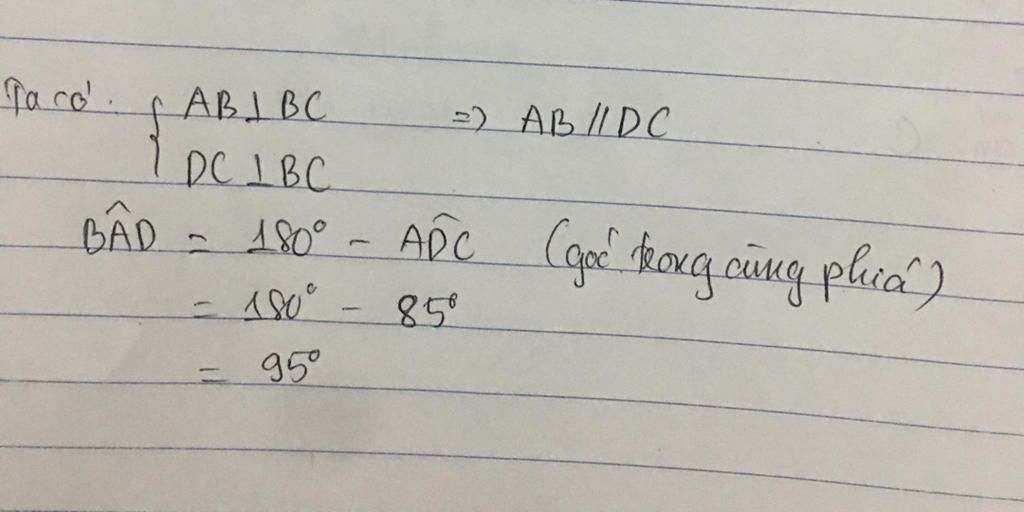 Ta có. { AB⊥BC => AB//DC
DC⊥BC
BÂD = 180° - AD̂C (góc trong cùng phiá)
= 180° - 85°
= 95°